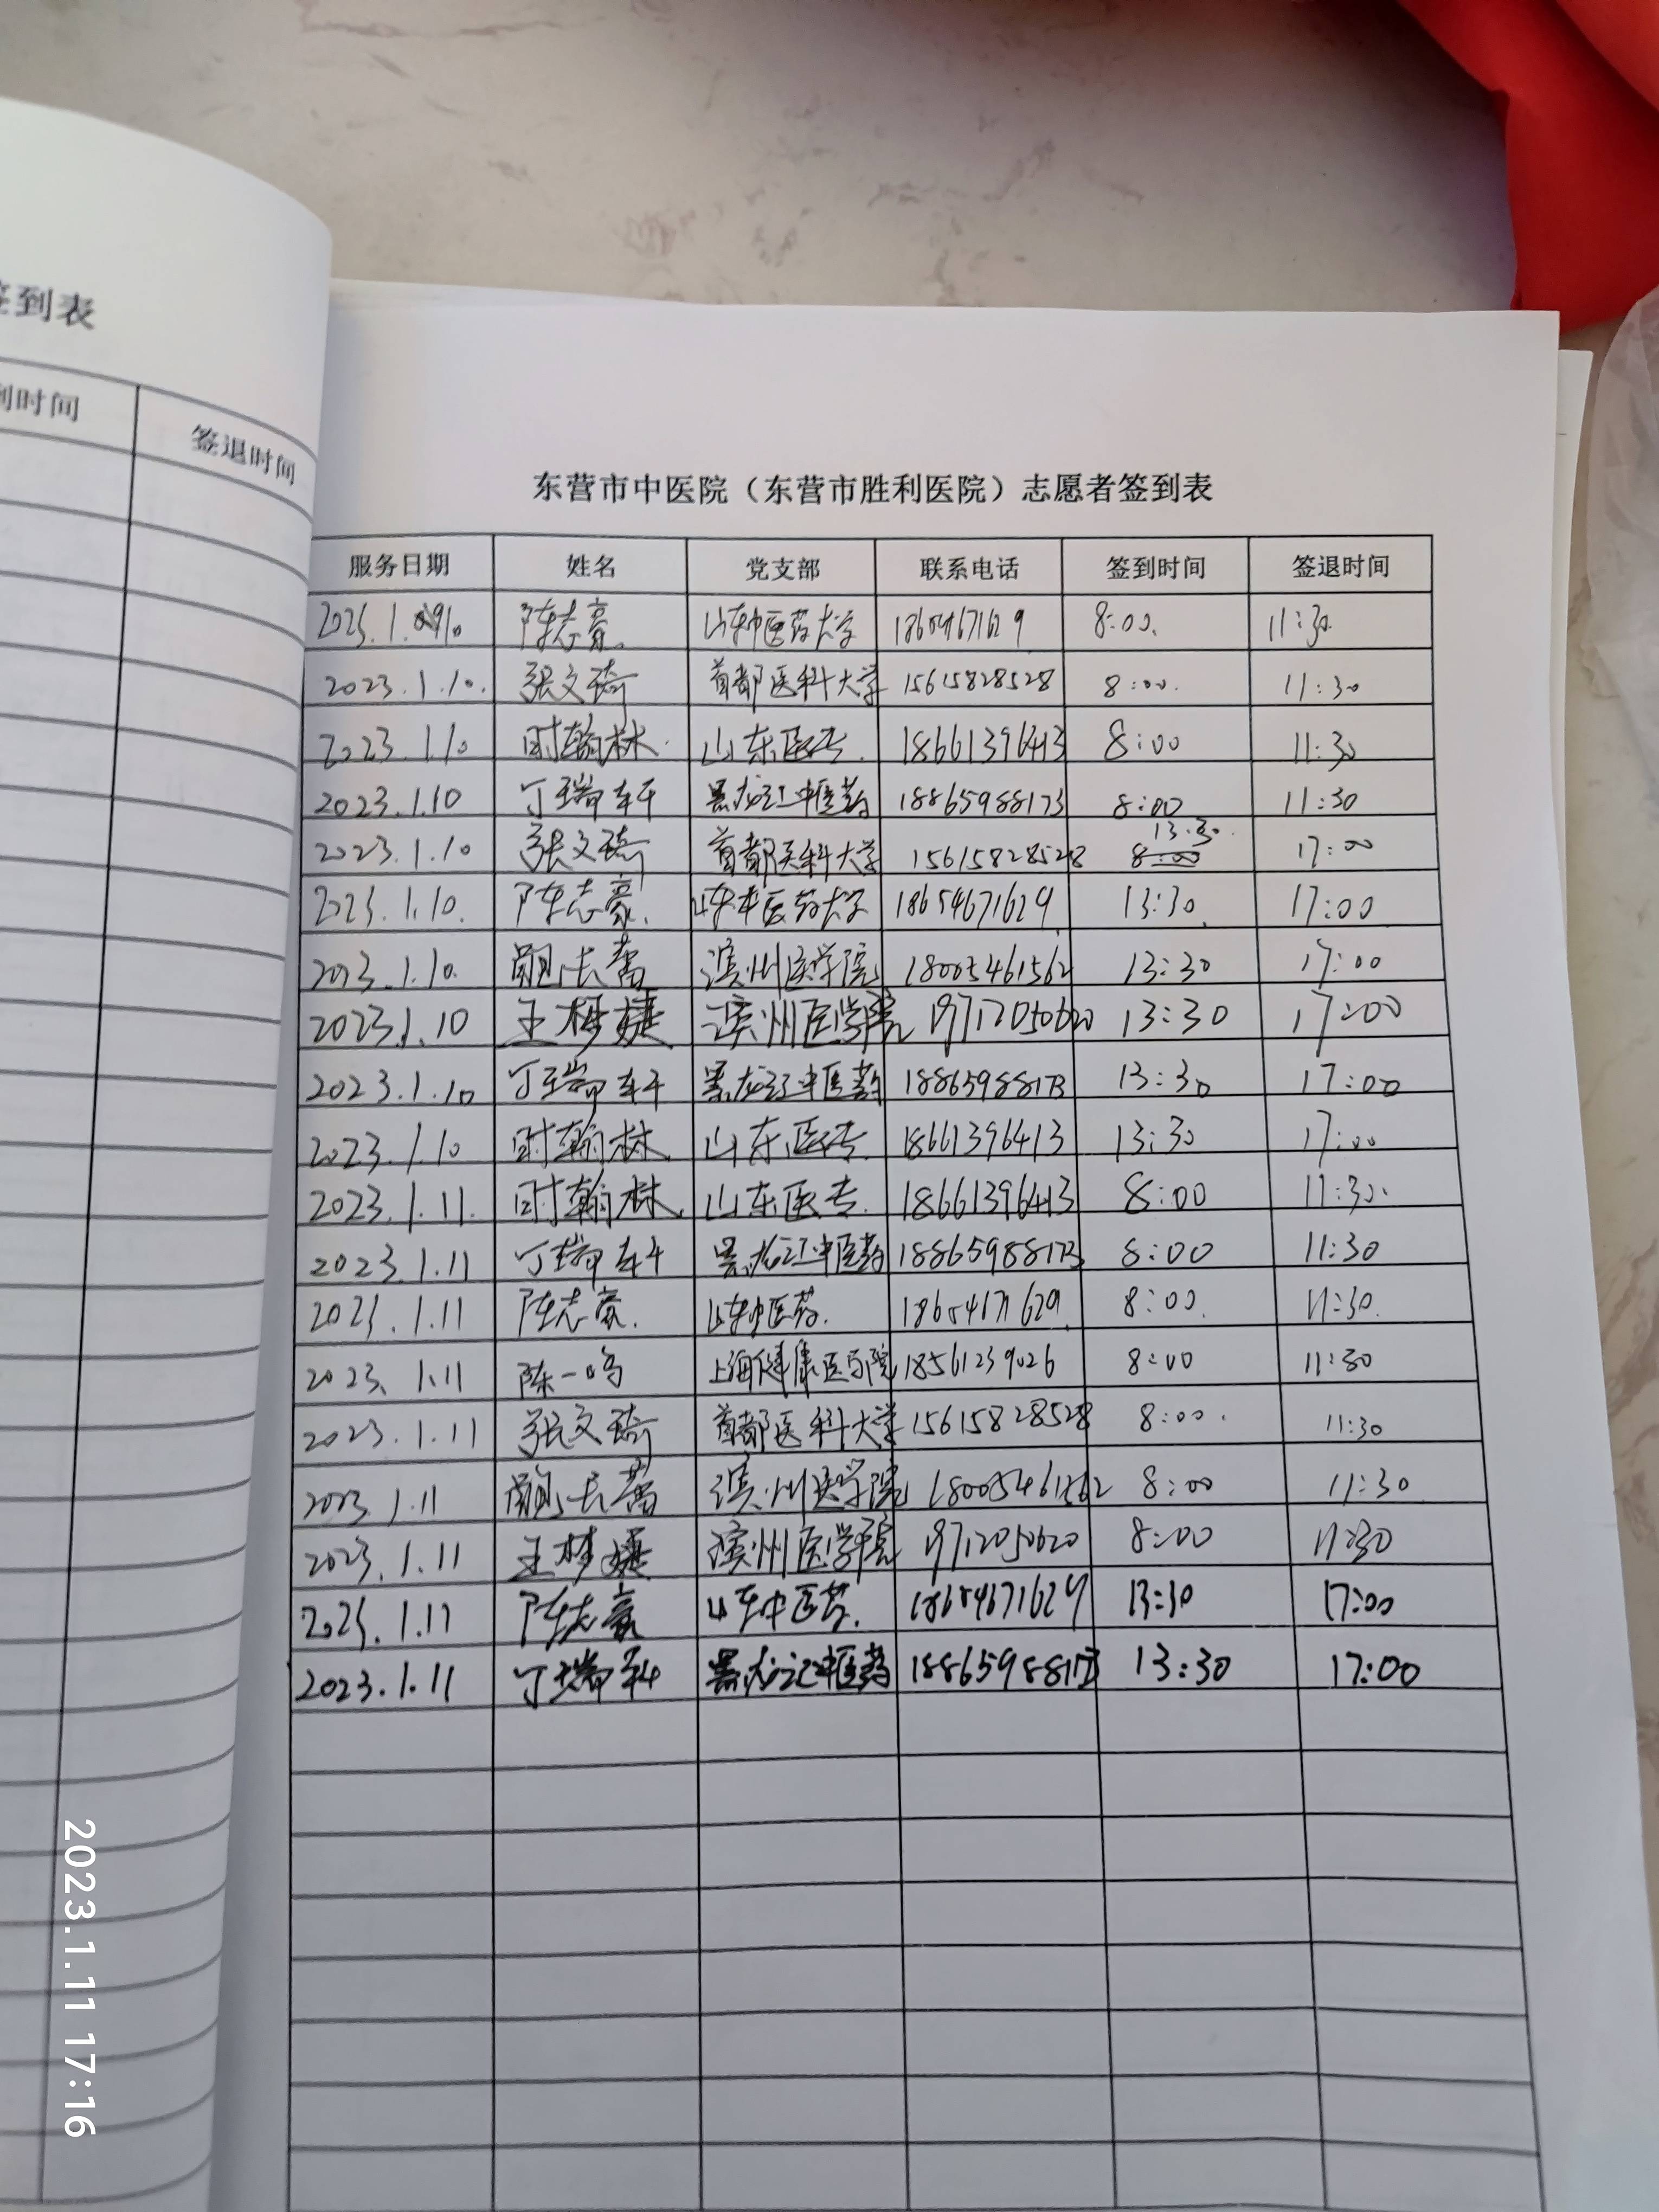 到表
时间
签退时间
东营市中医院（东营市胜利医院）志愿者签到表
服务日期 姓名 党支部 联系电话 签到时间 签退时间
2023.1.10 陈志豪 山东中医药大学 18654671629 8:00 11:30
2023.1.10. 张文琦 首都医科大学 15615828528 8:00 11:30
2023.1.10 时翰林 山东医专 18661396413 8:00 11:30
2023.1.10 丁瑞轩 黑龙江中医药 18865988173 8:00 11:30
2023.1.10 张文琦 首都医科大学 15615828528 13:30 17:00
2023.1.10. 陈志豪 山东中医药大学 18654671629 13:30 17:00
2023.1.10. 滨州医学院 18005461562 13:30 17:00
2023.1.10 王梦婕 滨州医学院 19712050620 13:30 17:00
2023.1.10 丁瑞轩 黑龙江中医药 18865988173 13:30 17:00
2023.1.10 时翰林 山东医专 18661396413 13:30 17:00
2023.1.11. 时翰林 山东医专 18661396413 8:00 11:30
2023.1.11 丁瑞轩 黑龙江中医药 18865988173 8:00 11:30
2023.1.11 陈志豪 山东中医药 18654671629 8:00 11:30
2023.1.11 陈一鸣 上海健康医学院 18561239026 8:00 11:30
2023.1.11 张文琦 首都医科大学 15615828528 8:00 11:30
2023.1.11 滨州医学院 18005461562 8:00 11:30
2023.1.11 王梦婕 滨州医学院 19712050620 8:00 11:30
2023.1.11 陈志豪 山东中医药 18654671629 13:30 17:00
2023.1.11 丁瑞轩 黑龙江中医药 18865988173 13:30 17:00
2023.1.11 17:16